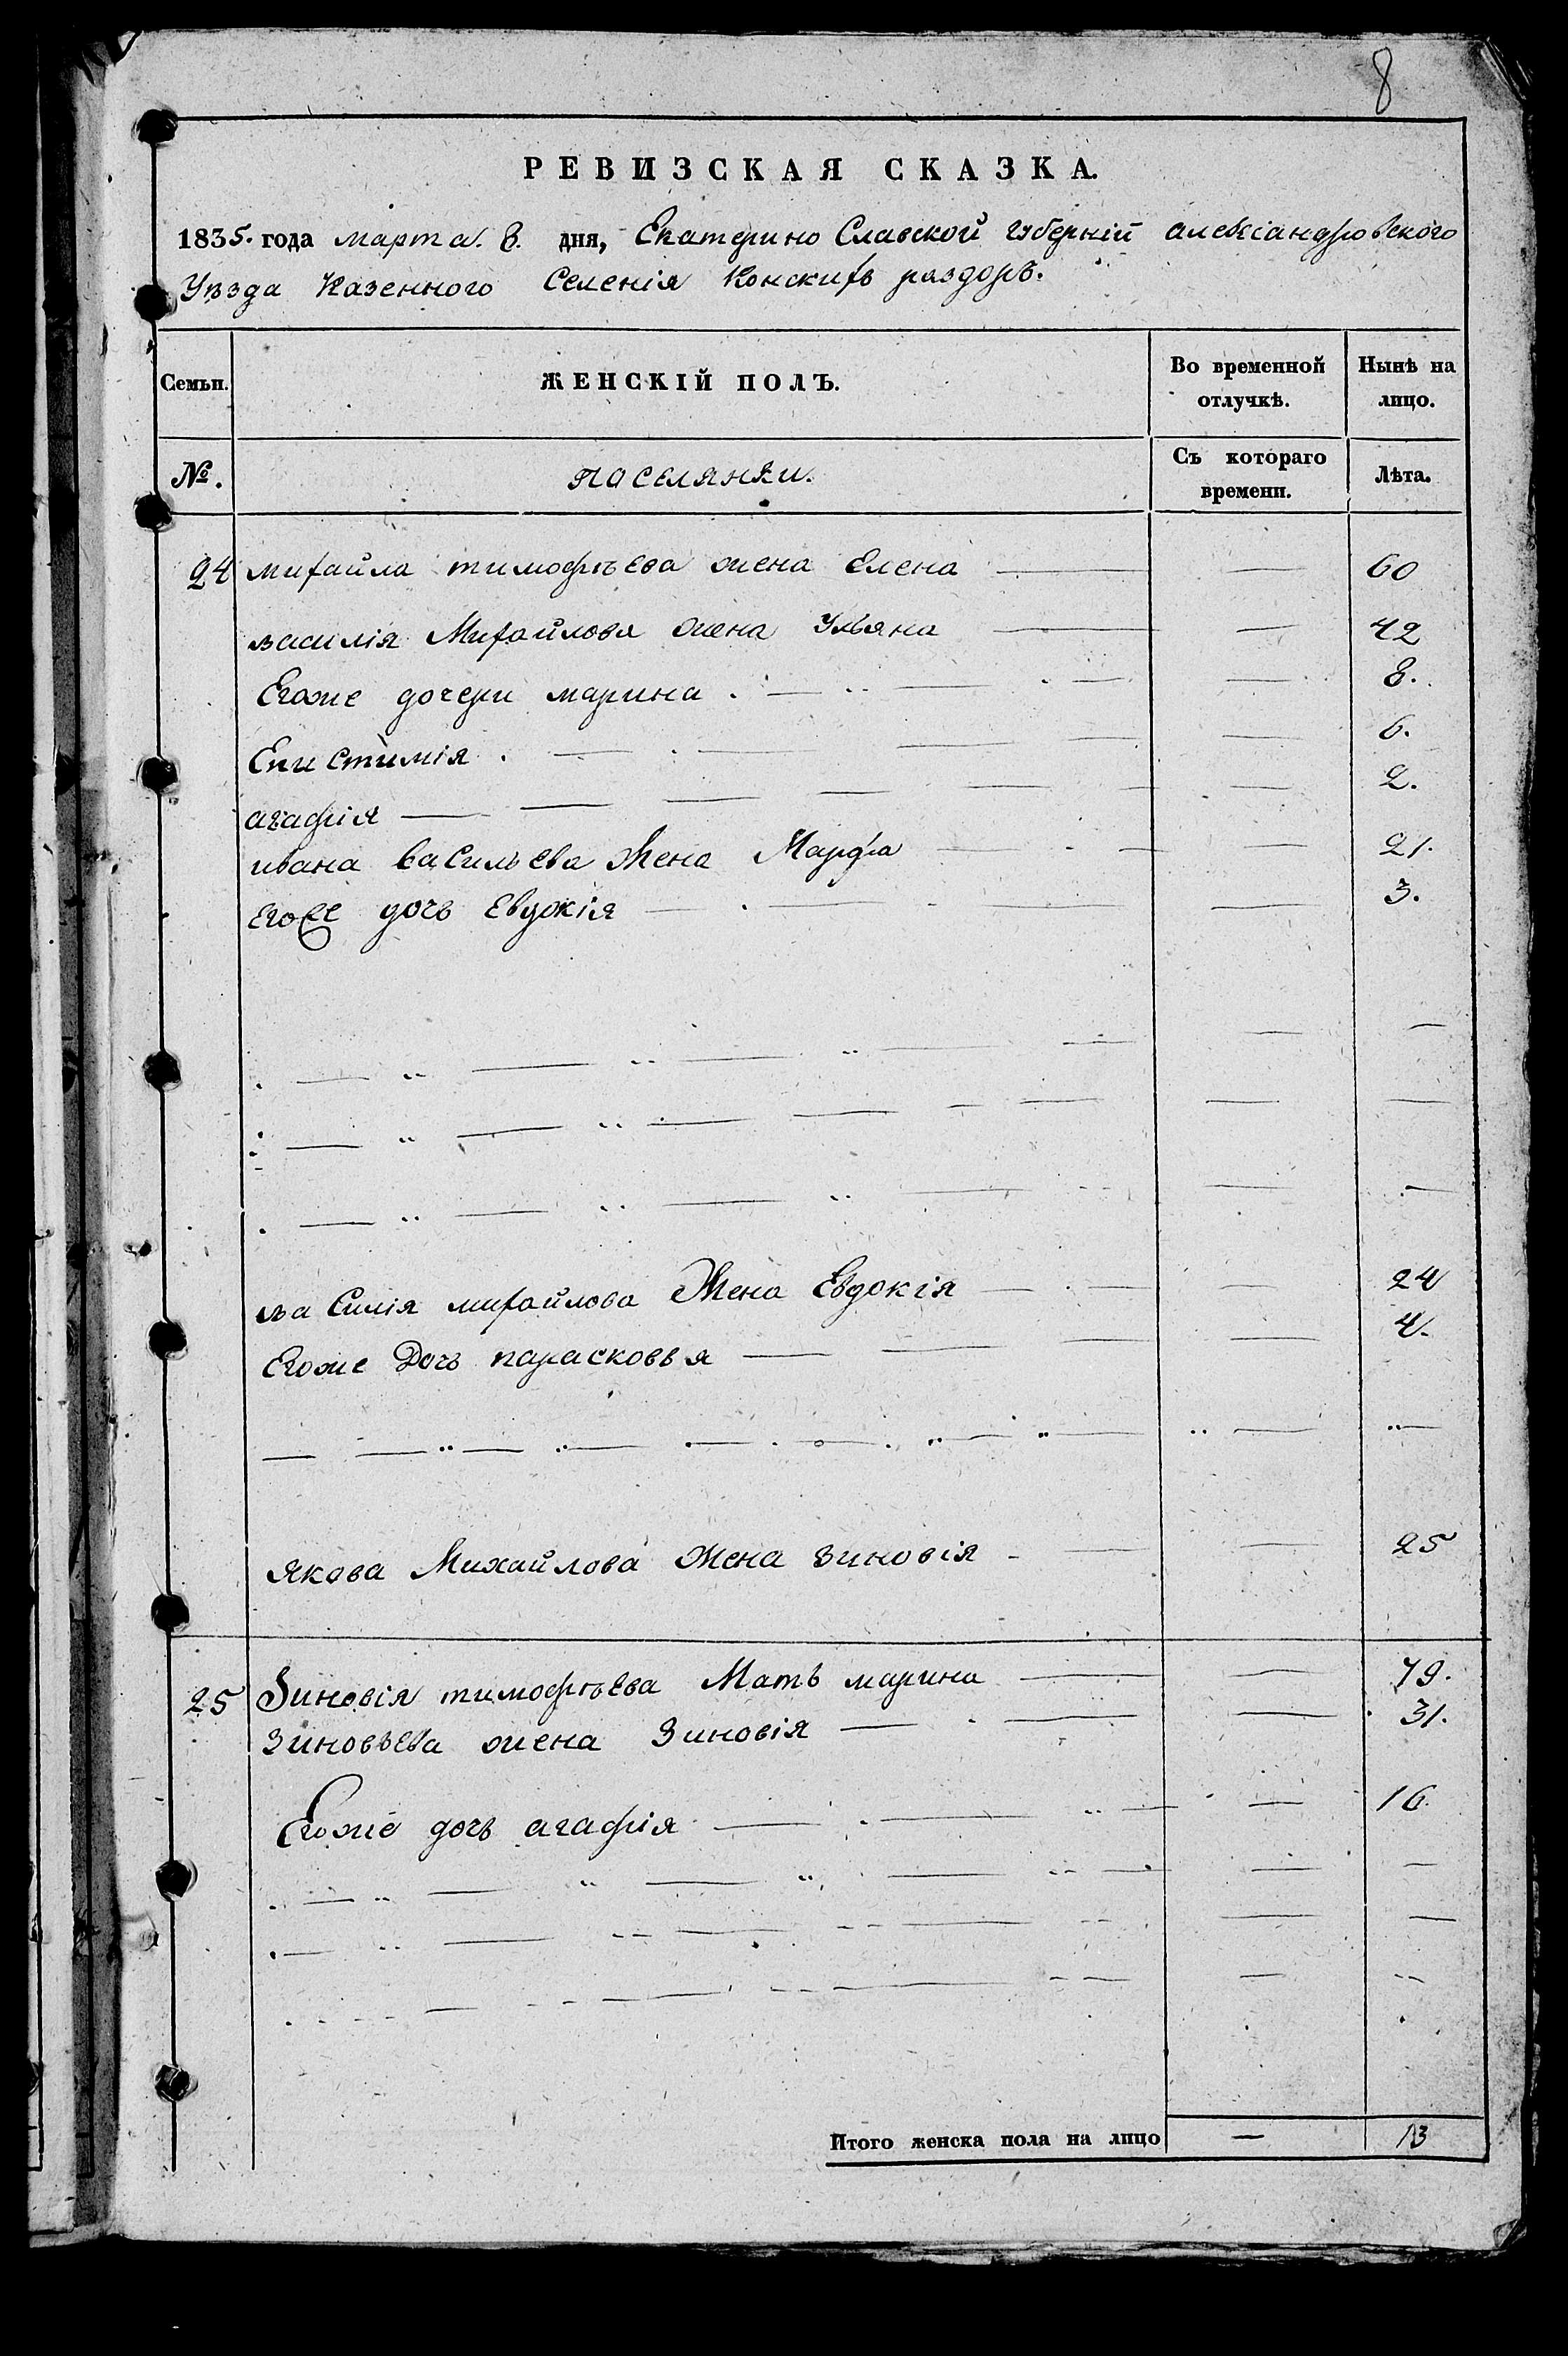 8
РЕВИЗСКАЯ СКАЗКА.
1835. года марта. 8. дня, Екатерино Славской губерніи алексіандровского
Уѣзда Казенного Селенія Конскихъ раздоръ.
Семьи. ЖЕНСКІЙ ПОЛЪ. Во временной отлучкѣ. Нынѣ на лицо.
№. поселянки. Съ котораго времени. Лѣта.
24 михайла тимофѣева жена Елена — — 60
василія Михайлова жена Ульяна — — 42
Егоже дочери марина . — — 8.
Епистимія . — — 6.
агафія — — 2.
ивана васильева жена Марфа — — 21.
Егоже дочь евдокія — — 3.
василія михайлова жена Евдокія — — 24
Егоже Дочь парасковья — — 4.
якова Михайлова жена зиновія — — 25
25 Зиновія тимофѣева Мать марина — — 79.
Зиновъева жена Зиновія — — 31.
Егоже дочь агафія — — 16.
Итого женска пола на лицо — 13